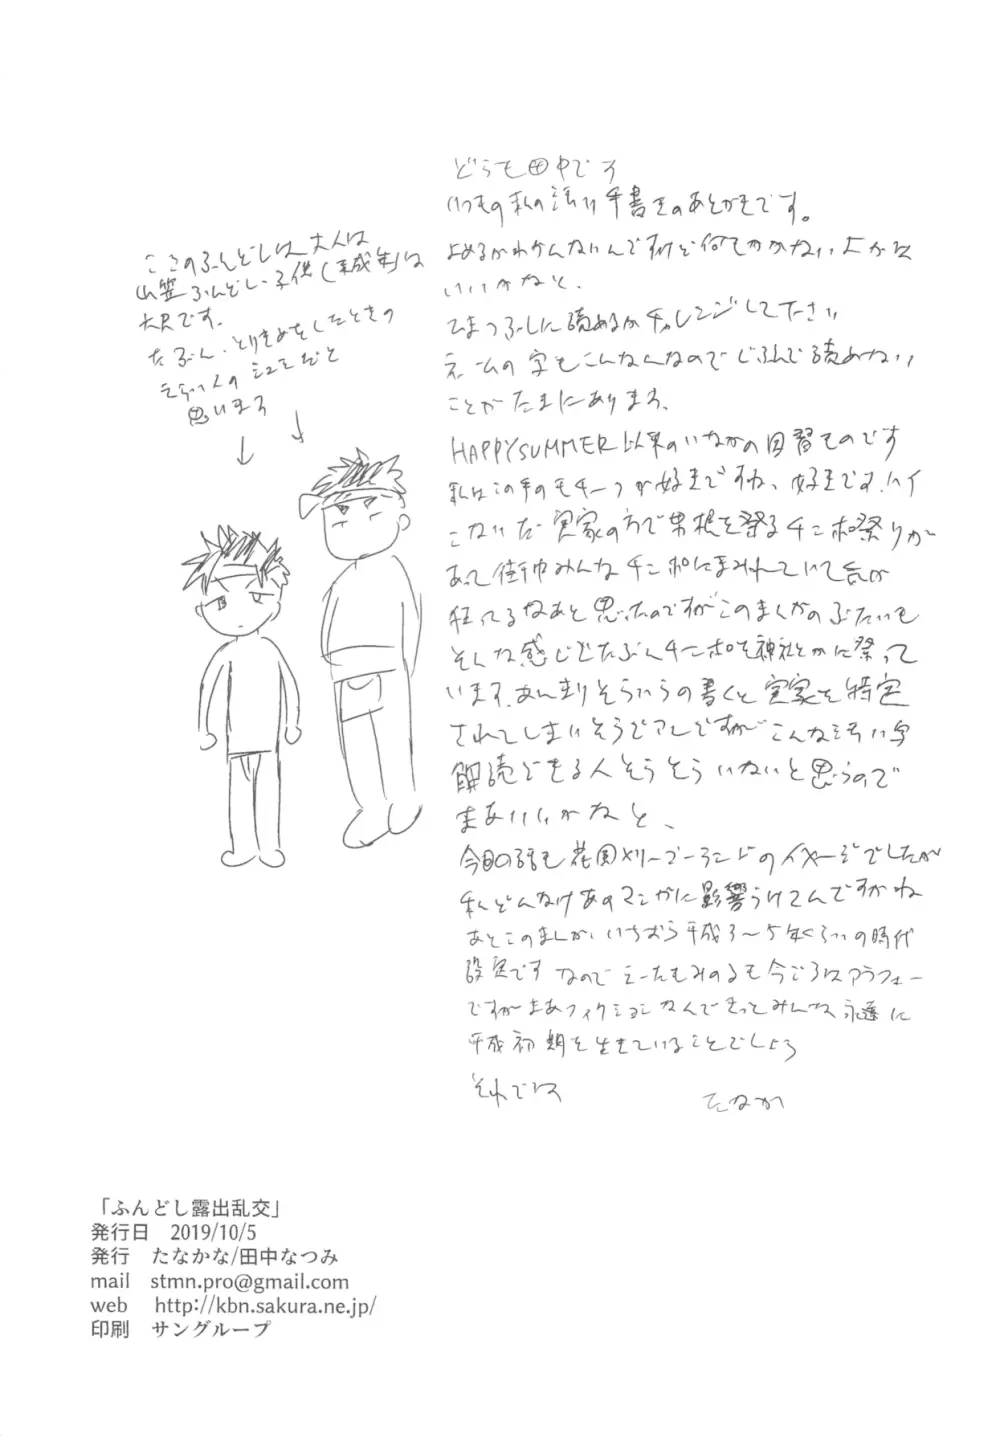 どうも田中です
いつもの私の汚い手書きのあとがきです。
よめるかわかんないんですけど何でもかかないよかは
いいかなと、
ひまつぶしに読めるかチャレンジしてください
ネームの字もこんなんなのでじぶんで読めない
ことがたまにあります、
HAPPYSUMMER以来のいなかの因習ものです
私はこの手のモチーフが好きですね、好きです。ハイ
こないだ実家の方で男根を祭るチンポ祭りが
あって街中みんなチンポにまみれていて気が
狂ってるなあと思ったのですがこのまんがのぶたいも
そんな感じでたぶんチンポを神社とかに祭って
います、あんまりそういうの書くと実家を特定
されてしまいそうでアレですがこんな汚い字
解読できる人そうそういないと思うので
まあいいかなと、
今回の話も花園メリーゴーランドのイメージでしたが
私どんだけあのマンガに影響うけてんですかね
あとこのまんが、いちおう平成3〜5年ぐらいの時代
設定です なので しょーたもみのるも今ごろはアラフォー
ですがまあフィクションなんできっとみんな永遠に
平成初期を生きていることでしょう
それでは
たなか
ここのふんどしは大人は
山笠ふんどし、子供(未成年)は
六尺です。
たぶん、とりきめをしたときの
えらい人の
思います
「ふんどし露出乱交」
発行日 2019/10/5
発行 たなかな/田中なつみ
mail stmn.pro@gmail.com
web http://kbn.sakura.ne.jp/
印刷 サングループ